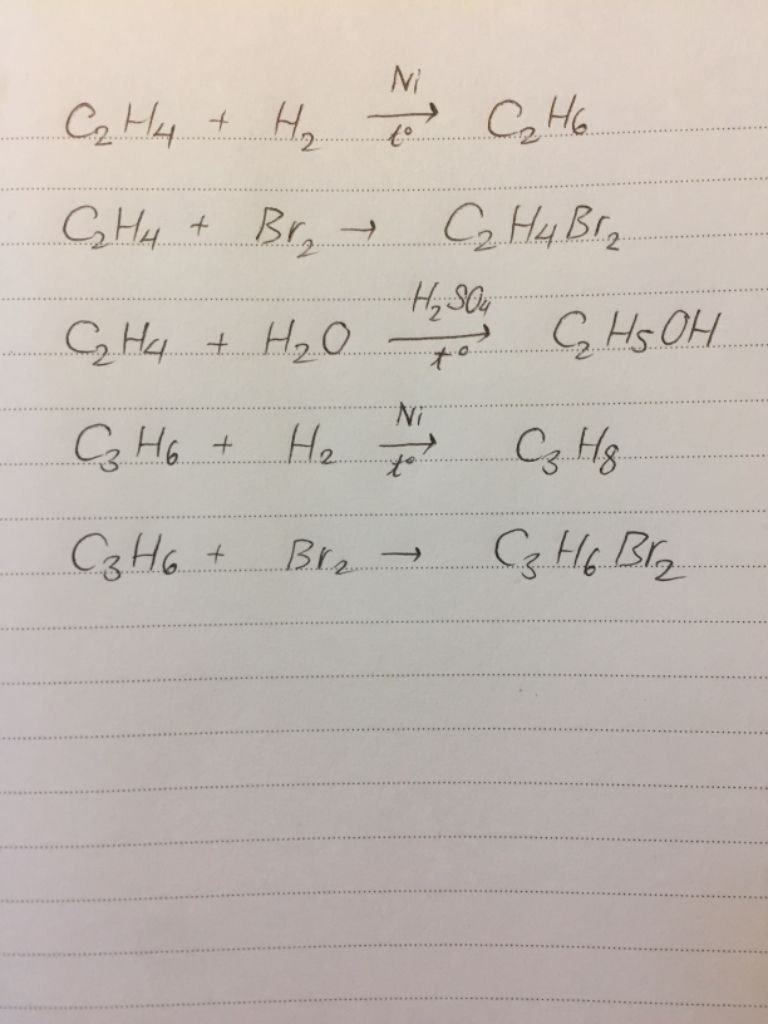 C2H4 + H2 →[Ni][t°] C2H6
C2H4 + Br2 → C2H4Br2
C2H4 + H2O →[H2SO4][t°] C2H5OH
C3H6 + H2 →[Ni][t°] C3H8
C3H6 + Br2 → C3H6Br2